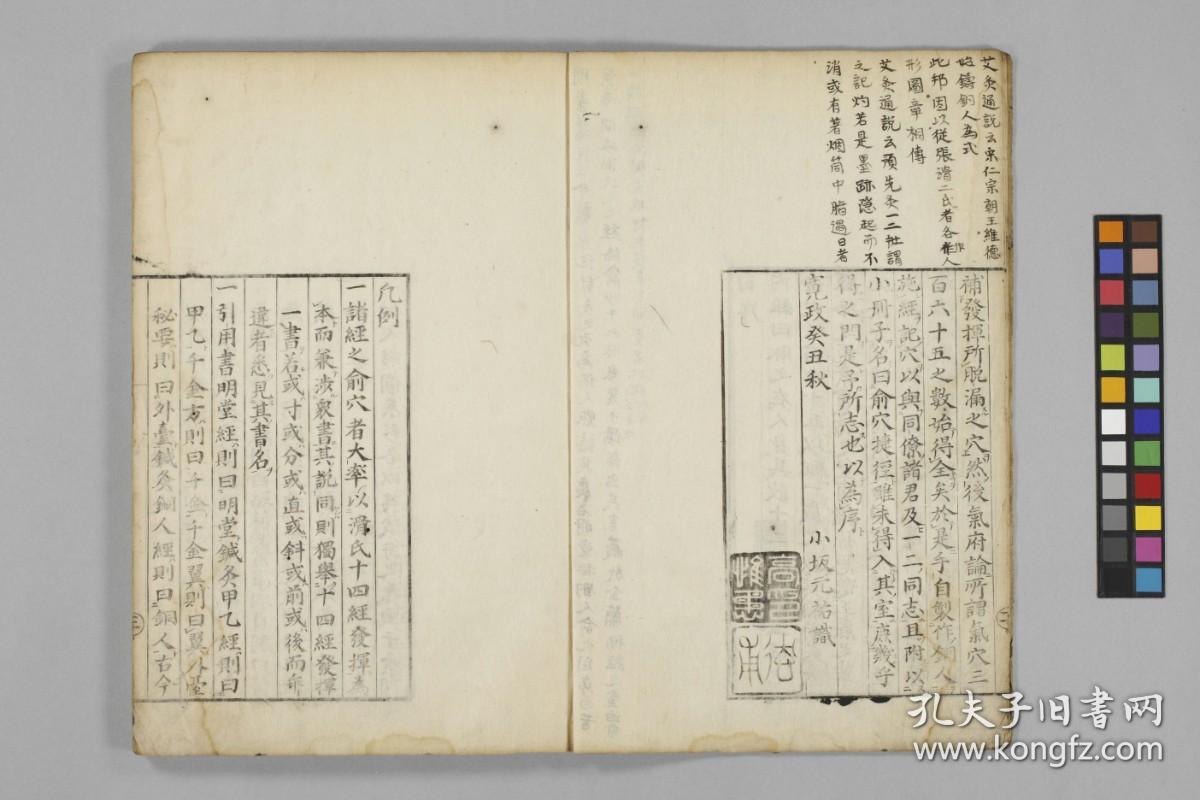 艾灸通説云宋仁宗朝王維德
始鑄銅人為式
此邦因以從張滑二氏者各作人
形圖章相傳
艾灸通説云預先灸一二壯謂
之記灼若是墨跡隱起而不
消或有著烟筒中脂過日者
補發揮所脱漏之穴然後氣府論所謂氣穴三
百六十五之數始得全矣於是乎自製作銅人
施經記穴以與同僚諸君及一二同志且附以
小冊子名曰俞穴捷徑雖未得入其室庶幾乎
得之門是予所志也以為序
寛政癸丑秋
小坂元祐識
凡例
一諸經之俞穴者大率以滑氏十四經發揮為
本而兼涉衆書其説同則獨舉十四經發揮
一書若或寸或分或直或斜或前或後而
違者悉見其書名
一引用書明堂經則曰明堂鍼灸甲乙經則曰
甲乙千金方則曰千金千金翼則曰翼外臺
秘要則曰外臺鍼灸銅人經則曰銅人古今
三
孔夫子旧书网
www.kongfz.com